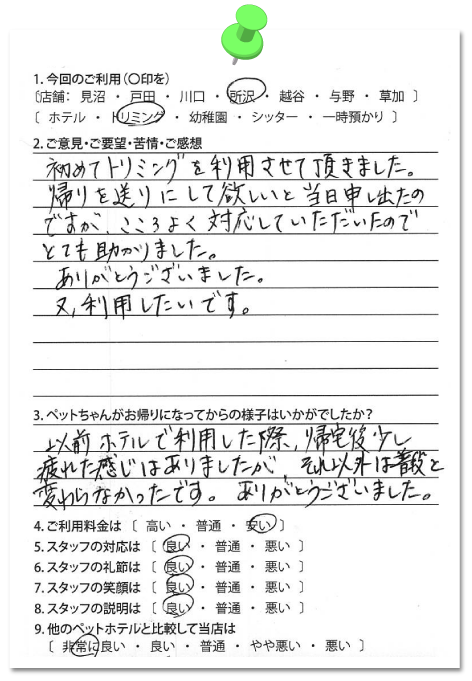 1. 今回のご利用(〇印を)
〔店舗： 見沼 ・ 戸田 ・ 川口 ・ 所沢 ・ 越谷 ・ 与野 ・ 草加 〕
〔 ホテル ・ トリミング ・ 幼稚園 ・ シッター ・ 一時預かり 〕
2. ご意見・ご要望・苦情・ご感想
初めてトリミングを利用させて頂きました。
帰りを送りにして欲しいと当日申し出たの
ですが、こころよく対応していただいたので
とても助かりました。
ありがとうございました。
又、利用したいです。
3. ペットちゃんがお帰りになってからの様子はいかがでしたか？
以前ホテルで利用した際、帰宅後少し
疲れた感じはありましたが、それ以外は普段と
変わらなかったです。 ありがとうございました。
4. ご利用料金は 〔 高い ・ 普通 ・ 安い 〕
5. スタッフの対応は 〔 良い ・ 普通 ・ 悪い 〕
6. スタッフの礼節は 〔 良い ・ 普通 ・ 悪い 〕
7. スタッフの笑顔は 〔 良い ・ 普通 ・ 悪い 〕
8. スタッフの説明は 〔 良い ・ 普通 ・ 悪い 〕
9. 他のペットホテルと比較して当店は
〔 非常に良い ・ 良い ・ 普通 ・ やや悪い ・ 悪い 〕